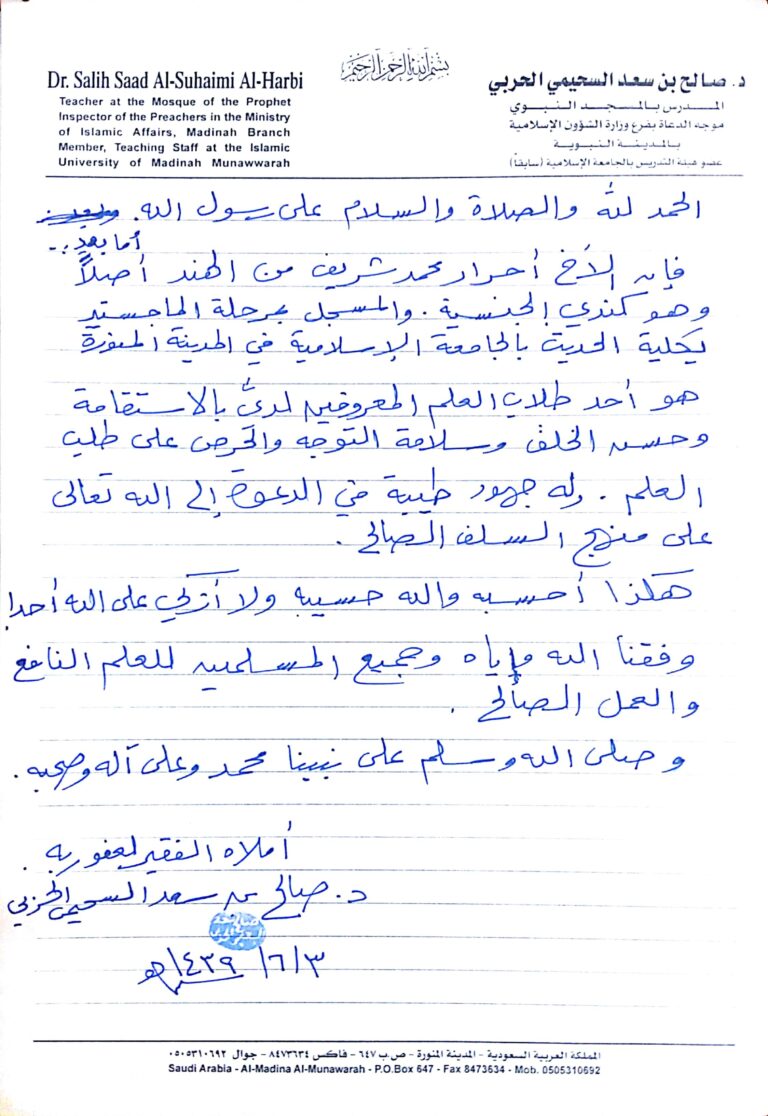 بسم الله الرحمن الرحيم
د. صالح بن سعد السحيمي الحربي
المدرس بالمسجد النبوي
موجه الدعاة بفرع وزارة الشؤون الإسلامية
بالمدينة النبوية
عضو هيئة التدريس بالجامعة الإسلامية (سابقاً)
Dr. Salih Saad Al-Suhaimi Al-Harbi
Teacher at the Mosque of the Prophet
Inspector of the Preachers in the Ministry
of Islamic Affairs, Madinah Branch
Member, Teaching Staff at the Islamic
University of Madinah Munawwarah
الحمد لله والصلاة والسلام على رسول الله.
أما بعد:-
فإن الأخ أحرار محمد شريف من الهند أصلاً
وهو كندي الجنسية. والمسجل بمرحلة الماجستير
بكلية الحديث بالجامعة الإسلامية في المدينة المنورة
هو أحد طلاب العلم المعروفين لديَّ بالاستقامة
وحسن الخلق وسلامة التوجه والحرص على طلب
العلم. وله جهود طيبة في الدعوة إلى الله تعالى
على منهج السلف الصالح.
هكذا أحسبه والله حسيبه ولا أزكي على الله أحدا
وفقنا الله وإياه وجميع المسلمين للعلم النافع
والعمل الصالح.
وصلى الله وسلم على نبينا محمد وعلى آله وصحبه.
أملاه الفقير لعفو ربه.
د. صالح بن سعد السحيمي الحربي
١٤٣٩/٦/٣هـ
المملكة العربية السعودية - المدينة المنورة - ص.ب ٦٤٧ - فاكس ٨٤٧٣٦٣٤ - جوال ٠٥٠٥٣١٠٦٩٢
Saudi Arabia - Al-Madina Al-Munawarah - P.O.Box 647 - Fax 8473634 - Mob. 0505310692